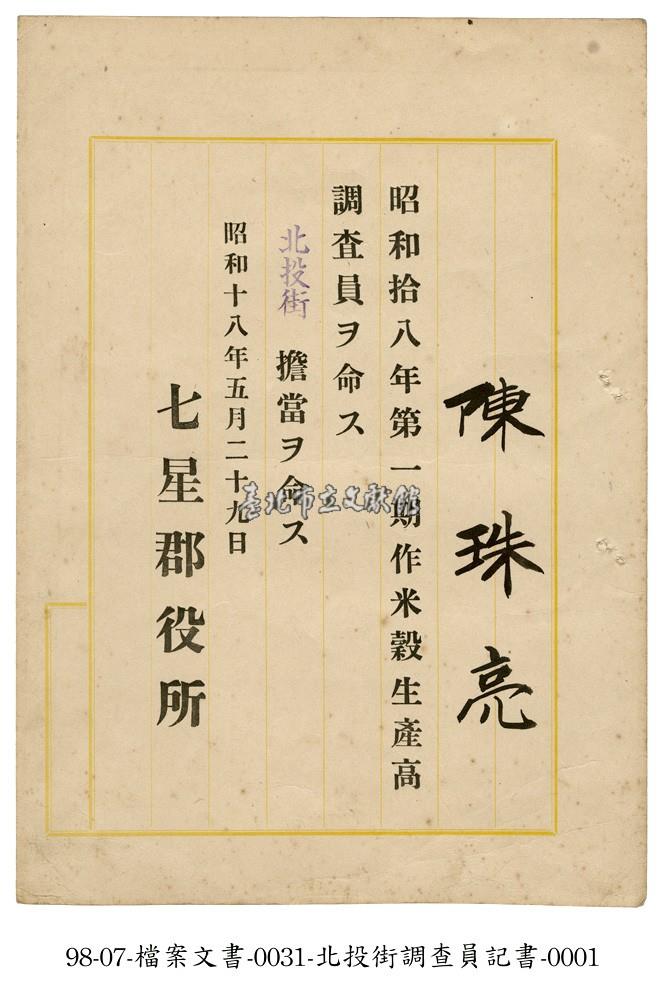 陳珠亮
昭和拾八年第一期作米穀生產高
調查員ヲ命ス
北投街 擔當ヲ命ス
昭和十八年五月二十九日
七星郡役所
臺北市立文獻館
98-07-檔案文書-0031-北投街調查員記書-0001